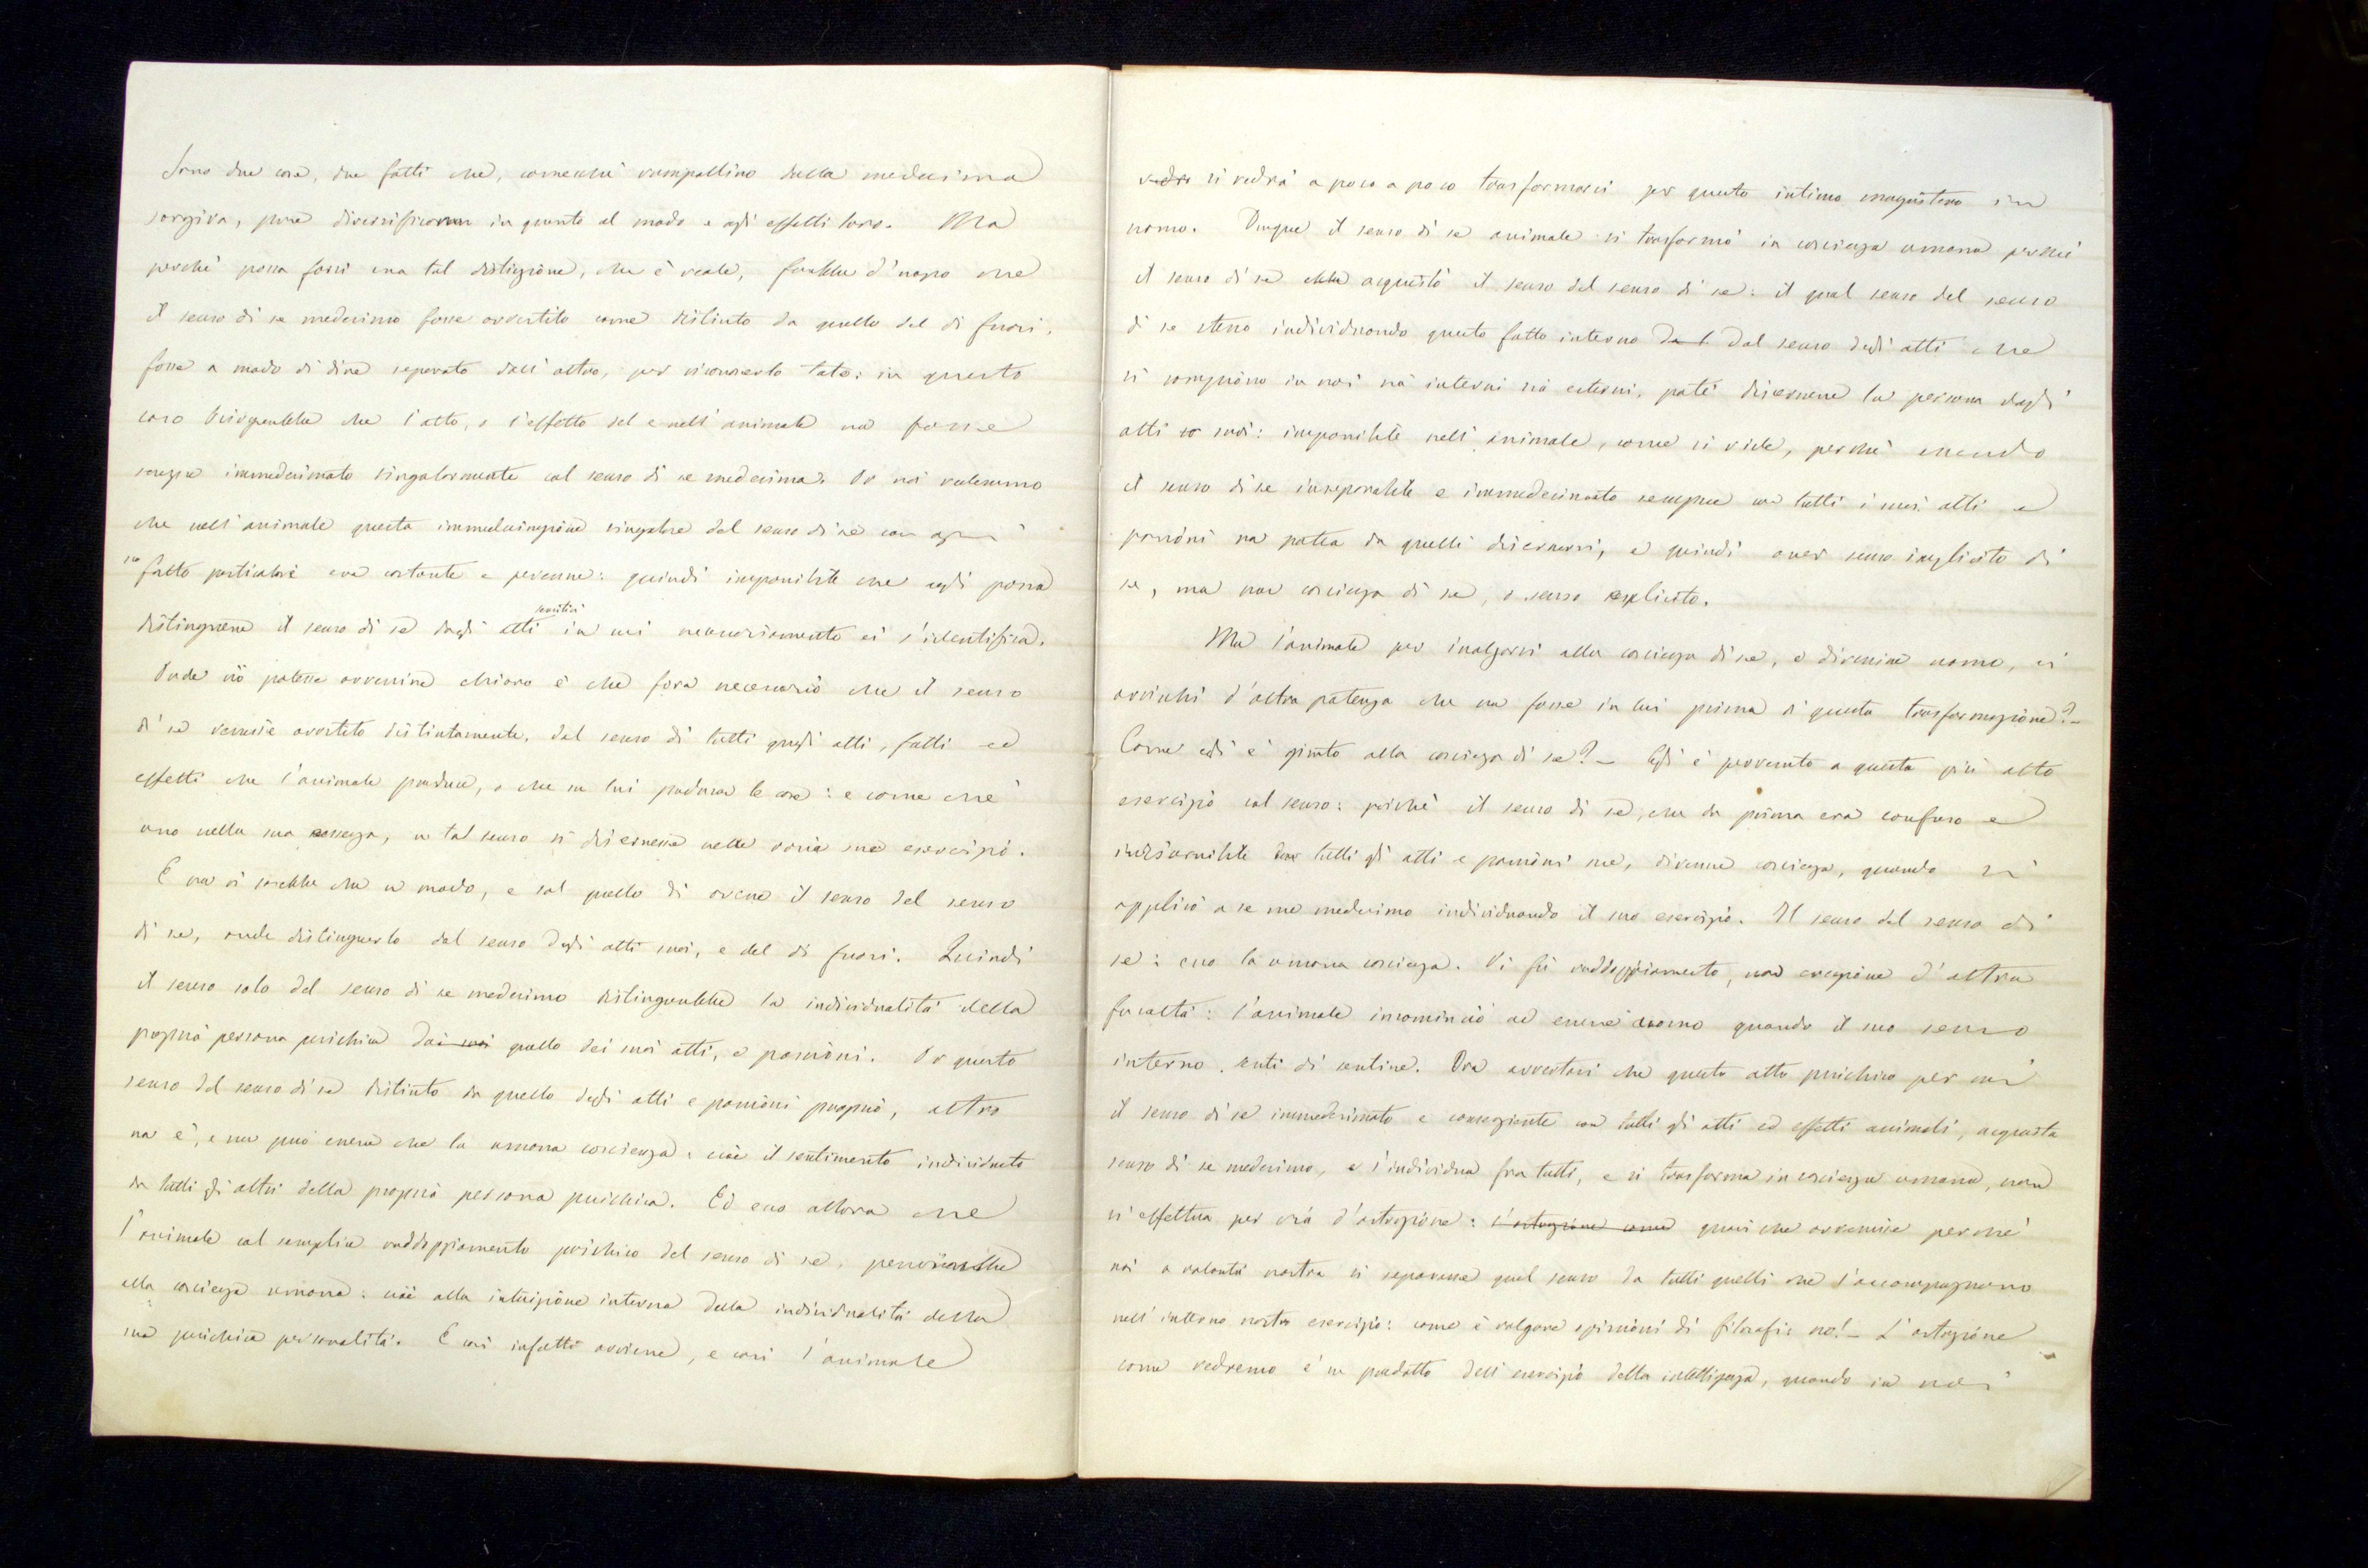 Sono due cose, due fatti che, comecché rampollino dalla medesima
sorgiva, pure diversificano in quanto al modo e agli effetti loro. Ma
perché possa farsi una tal distinzione, che è reale, farebbe d'uopo che
il senso di se medesimo fosse avvertito come distinto da quello del di fuori,
fosse a modo di dire separato dall'altro, per riconoscerlo tale: in questo
caso bisognerebbe che l'atto, o l'effetto del e nell'animale no fosse
sempre immedesimato singolarmente col senso di se medesima. Or noi vedemmo
che nell'animale questa immedesimazione singolare del senso di se con ogni
suo fatto particolare era costante e perenne: quindi impossibile che egli possa
distinguere il senso di se dagli atti sensitivi in cui necessariamente ei s'identifica.
Onde ciò potesse avvenire chiaro è che fora necessario che il senso
di se venisse avvertito distintamente, dal senso di tutti quegli atti, fatti ed
effetti che l'animale produce, o che in lui produca le cose: e come che
uno nella sua essenza, un tal senso si discernesse nelle varie sue esercizio.
E no vi sarebbe che un modo, e sol quello di avere il senso del senso
di se, onde distinguerlo dal senso degli atti suoi, e del di fuori. Quindi
il senso solo del senso di se medesimo distinguerebbe la individualità della
propria persona psichica dai suoi quello dei suoi atti, e passioni. Or questo
senso del senso di se distinto da quello degli atti e passioni proprio, altro
no è, e no può essere che la umana coscienza: cioè il sentimento individuato
da tutti gli altri della propria persona psichica. Ed ecco allora che
l'animale col semplice raddoppiamento psichico del senso di se, perverrebbe
alla coscienza umana: cioè alla intuizione interna della individualità della
sua psichica personalità. E così infatti avviene, e così l'animale
vedrà si vedrà a poco a poco trasformarsi per questo intimo magistero in
uomo. Dunque il senso di se animale si trasformò in coscienza umana perché
il senso di se ebbe acquistò il senso del senso di se: il qual senso del senso
di se stesso individuando questo fatto interno da l dal senso degli atti che
si compiono in noi nò interni nò esterni, poté discernere la persona dagli
atti so suoi: impossibile nell'animale, come si vide, perché essendo
il senso di se inseparabile e immedesimato sempre con tutti i suoi atti e
passioni no potea da quelli discernersi, e quindi aver senso implicito di
se, ma non coscienza di se, o senso esplicito.
Ma l'animale per inalzarsi alla coscienza di se, e divenire uomo, ei
arricchì d'altra potenza che no fosse in lui prima di questa trasformazione?–
Come egli è giunto alla coscienza di se?– Egli è pervenuto a questo più alto
esercizio col senso: poiché il senso di se, che da prima era confuso e
indiscernibile tra tutti gli atti e passioni sue, divenne coscienza, quando si
applicò a se medesimo individuando il suo esercizio. Il senso del senso di
se: ecco la umana coscienza. Vi fù raddoppiamento, non creazione d'altra
facoltà: l'animale incominciò ad essere uomo quando il suo senso
interno, sentì di sentire. Ora avvertasi che questo atto psichico per cui
il senso di se immedesimato e conseguente con tutti gli atti ed effetti animali, acquista
senso di se medesimo, e s'individua fra tutti, e si trasforma in coscienza umana, non
si effettua per via d'astrazione: l'astrazione come quasi che avvenisse perché
noi a volontà nostra si separasse quel senso da tutti quelli che l'accompagnano
nell'interno nostro esercizio: come è volgare opinioni di filosofi: no!– L'astrazione
come vedremo è un prodotto dell'esercizio della intelligenza, quando in noi